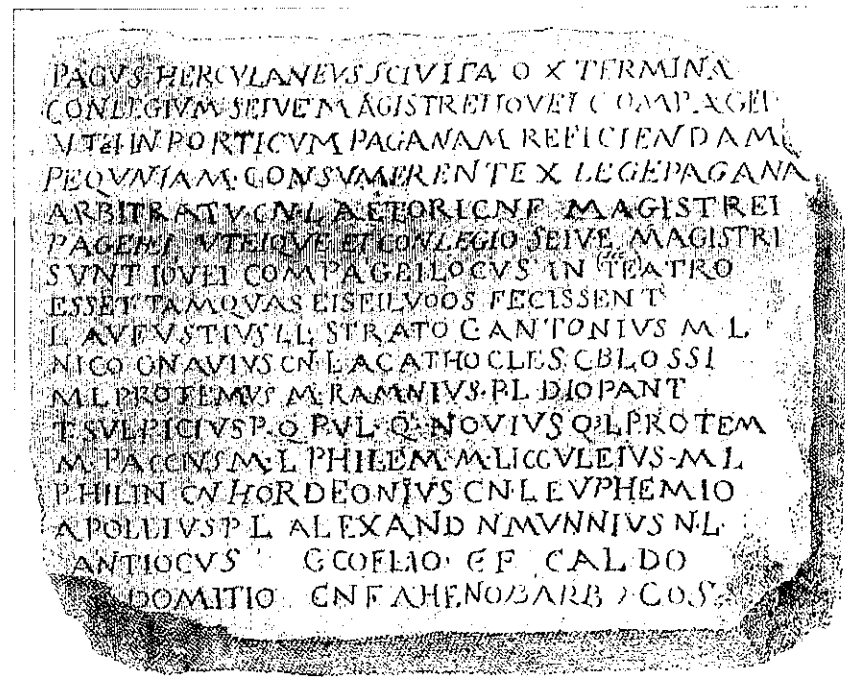 PAGVS·HERCVLANEVS SCIVITA O X TERMINA
CONLEGIVM·SEIVE MAGISTREI IOVEI COMPAGEI
VTEI IN PORTICVM PAGANAM REFICIENDAM
PEQVNIAM·CONSVMERENT EX LEGE PAGANA
ARBITRATV·CN·LAETORI CN F MAGISTREI
PAGEIEI VTEIQVE EI CONLEGIO SEIVE MAGISTRI
SVNT IOVEI COMPAGEI LOCVS IN TEATRO
ESSET TAMQVAS EI SEI LVDOS FECISSENT
L AVFVSTIVS L L STRATO C ANTONIVS M L
NICO GNAVIVS CN·L AGATHOCLES C BLOSSI
M L PROTEMVS M·RAMNIVS·P L DIOPANT
T SVLPICIVS P·Q PVL·Q·NOVIVS Q·L PROTEM
M PACCIVS M·L PHILEM·M·LICCVLEIVS·M L
PHILIN CN HORDEONIVS CN·L EVPHEMIO
A POLLIVS P L ALEXAND N MVNNIVS N·L·
ANTIOCVS G COELIO·G F CALDO
DOMITIO CN F AHENOBARB COS